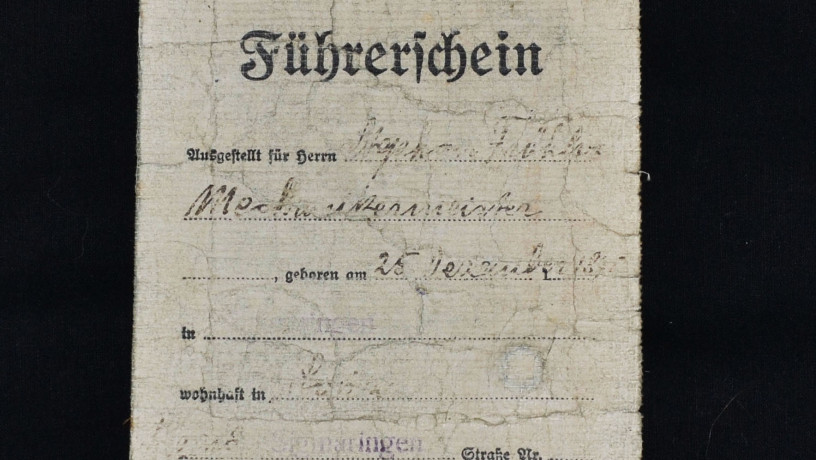 Führerschein
Ausgestellt für Herrn Stephan
Mechanikermeister
, geboren am 25 Dezember
in
wohnhaft in
Sigmaringen Straße Nr.